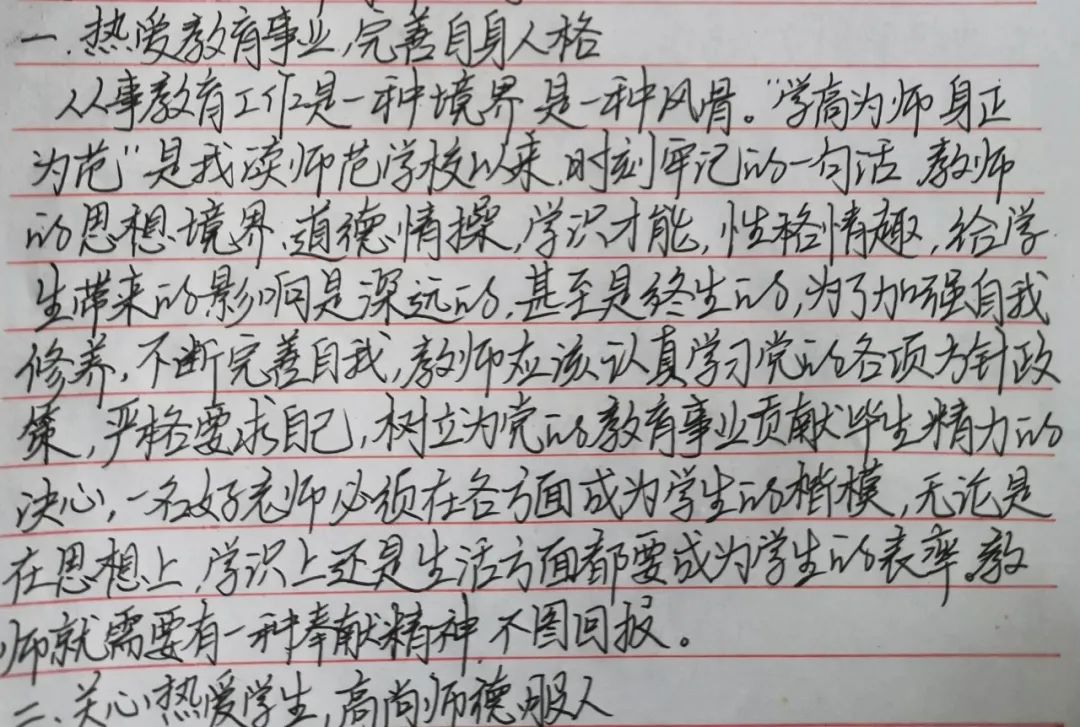 一、热爱教育事业,完善自身人格
从事教育工作是一种境界是一种风骨。“学高为师身正
为范”是我读师范学校以来,时刻牢记的一句话 教师
的思想境界、道德情操,学识才能,性格情趣,给学
生带来的影响是深远的,甚至是终生的,为了加强自我
修养,不断完善自我,教师应该认真学习党的各项方针政
策,严格要求自己,树立为党的教育事业贡献毕生精力的
决心,一名好老师必须在各方面成为学生的楷模,无论是
在思想上,学识上还是生活方面都要成为学生的表率。教
师就需要有一种奉献精神,不图回报。
二、关心热爱学生,高尚师德服人